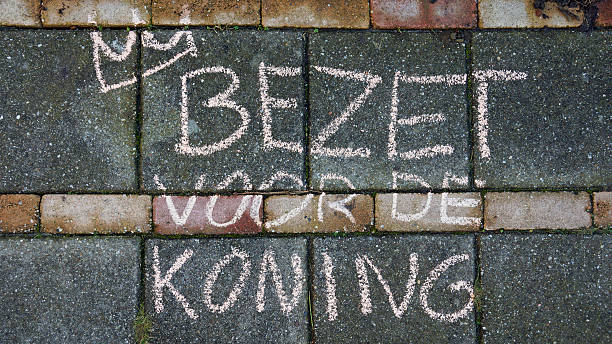 BEZET
VOOR DE
KONING